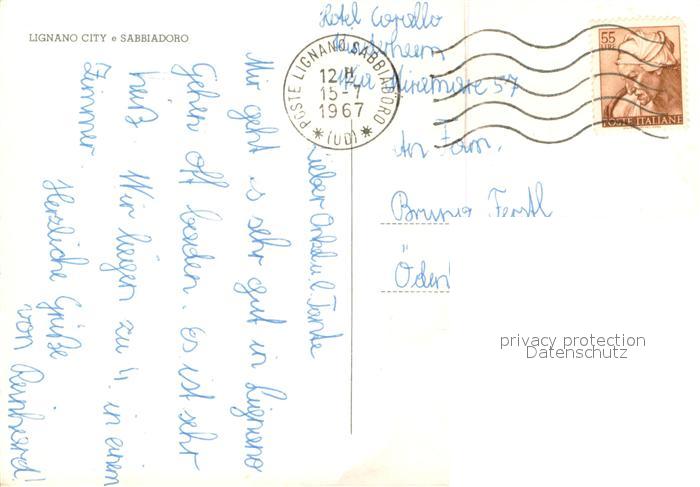 LIGNANO CITY e SABBIADORO
Hotel Corallo
Via Miramare 57
POSTE LIGNANO SABBIADORO
12 H
15-7
1967
(UD)
55
LIRE
POSTE ITALIANE
Lieber Onkel u. Tante
Mir geht es sehr gut in Lignano
Gehen oft baden. Es ist sehr
heiß. Wir liegen zu 4 in einem
Zimmer.
Herzliche Grüße
von Reinhard!
An Fam.
Bruno
Öden
privacy protection
Datenschutz